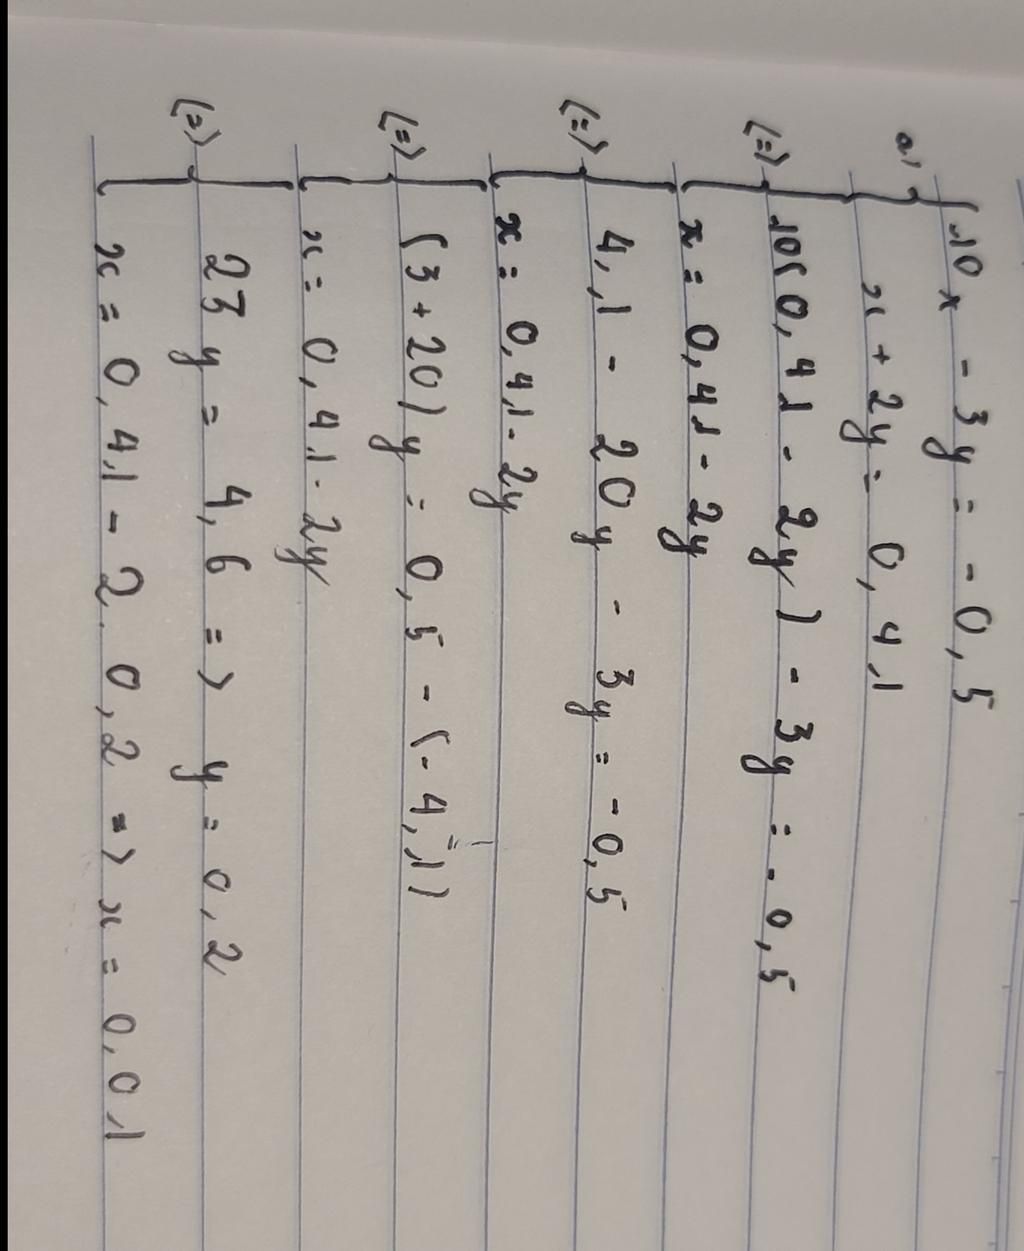 a, { 10x - 3y = - 0,5
x + 2y = 0,41
(=) { 10(0,41 - 2y) - 3y = - 0,5
x = 0,41 - 2y
(=) { 4,1 - 20y - 3y = - 0,5
x = 0,41 - 2y
(=) { (3 + 20)y = 0,5 - (- 4,1)
x = 0,41 - 2y
(=) { 23y = 4,6 => y = 0,2
x = 0,41 - 2. 0,2 => x = 0,01